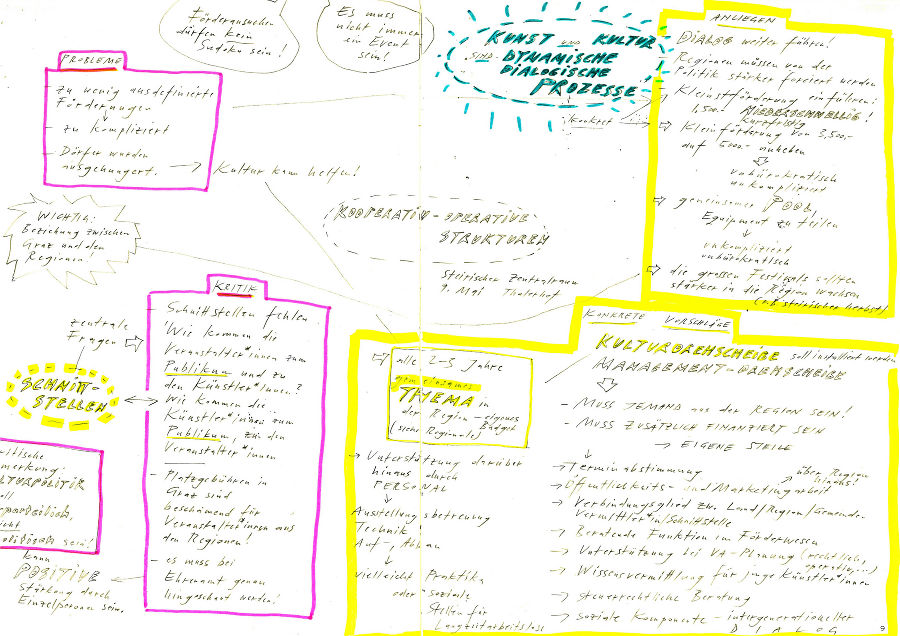 Förderansuchen
dürfen kein
Sudoku sein!
Es muss
nicht immer
ein Event
sein!
KUNST UND KULTUR
SIND DYNAMISCHE
DIALOGISCHE
PROZESSE
konkret
PROBLEME
- zu wenig ausdefinierte
Förderungen
zu kompliziert
- Dörfer wurden
ausgehungert.
Kultur kann helfen!
WICHTIG:
Beziehung zwischen
Graz und den
Regionen!
KOOPERATIV-OPERATIVE
STRUKTUREN
Steirischer Zentralraum
9. Mai Thalerhof
ANLIEGEN
DIALOG weiter führen!
- Regionen müssen von der
Politik stärker forciert werden
- Kleinstförderung einführen!
1.500.- NIEDERSCHWELLIG!
kurzfristig
Kleinförderung von 3.500,-
auf 5000.- anheben
unbürokratisch
unkompliziert
gemeinsamer POOL
Equipment zu teilen
unkompliziert
unbürokratisch
die grossen Festivals sollten
stärker in die Region wachsen
(z.B. steirischer herbst)
KRITIK
- Schnittstellen fehlen
"Wie kommen die
Veranstalter*innen zum
Publikum und zu
den Künstler*innen?
Wie kommen die
Künstler*innen zum
Publikum, zu den
Veranstalter*innen
- Platzgebühren in
Graz sind
beschämend für
Veranstalter*innen aus
den Regionen!
- es muss bei
Ehrenamt genau
hingeschaut werden!
zentrale
Fragen
SCHNITT-
STELLEN
itische
merkung:
ULTURPOLITIK
oll
sein!
kann
POSITIVE
Stärkung durch
Einzelpersonen sein.
KONKRETE VORSCHLÄGE
KULTURDREHSCHEIBE soll installiert werden
MANAGEMENT-DREHSCHEIBE
- MUSS JEMAND aus der REGION SEIN!
- MUSS ZUSÄTZLICH FINANZIERT SEIN
→ EIGENE STELLE
→ Terminabstimmung
über Region
hinaus!
→ Öffentlichkeits- und Marketingarbeit
→ Verbindungsglied zw. Land/Region/Gemeinden
Vermittler*in/Schnittstelle
→ Beratende Funktion im Förderwesen
→ Unterstützung bei VA-Planung (rechtlich,
operativ,...)
→ Wissensvermittlung für junge Künstler*innen
→ steuerrechtliche Beratung
→ soziale Komponente - intergenerationeller
DIALOG
alle 2-3 Jahre
gemeinsames
THEMA in
der Region - eigenes
Budget
(siehe Regionale)
→ Unterstützung darüber
hinaus durch
PERSONAL
Ausstellungsbetreuung
Technik
Auf-, Abbau
vielleicht Praktika
oder soziale
Stellen für
Langzeitarbeitslose
9